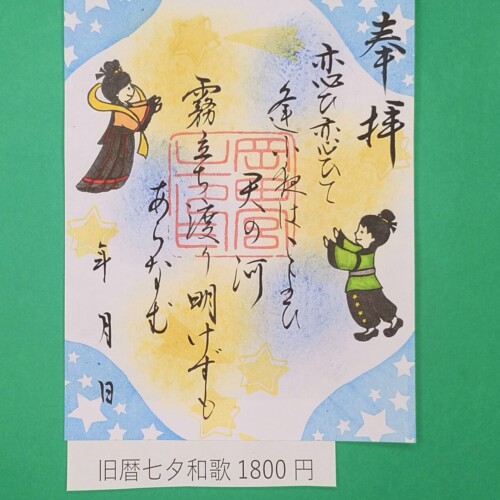 奉拝
恋ひ恋ひて
逢ふ夜はこよひ
天の河
霧立ち渡り明けずも
あらなむ
年 月 日
旧暦七夕和歌1800円